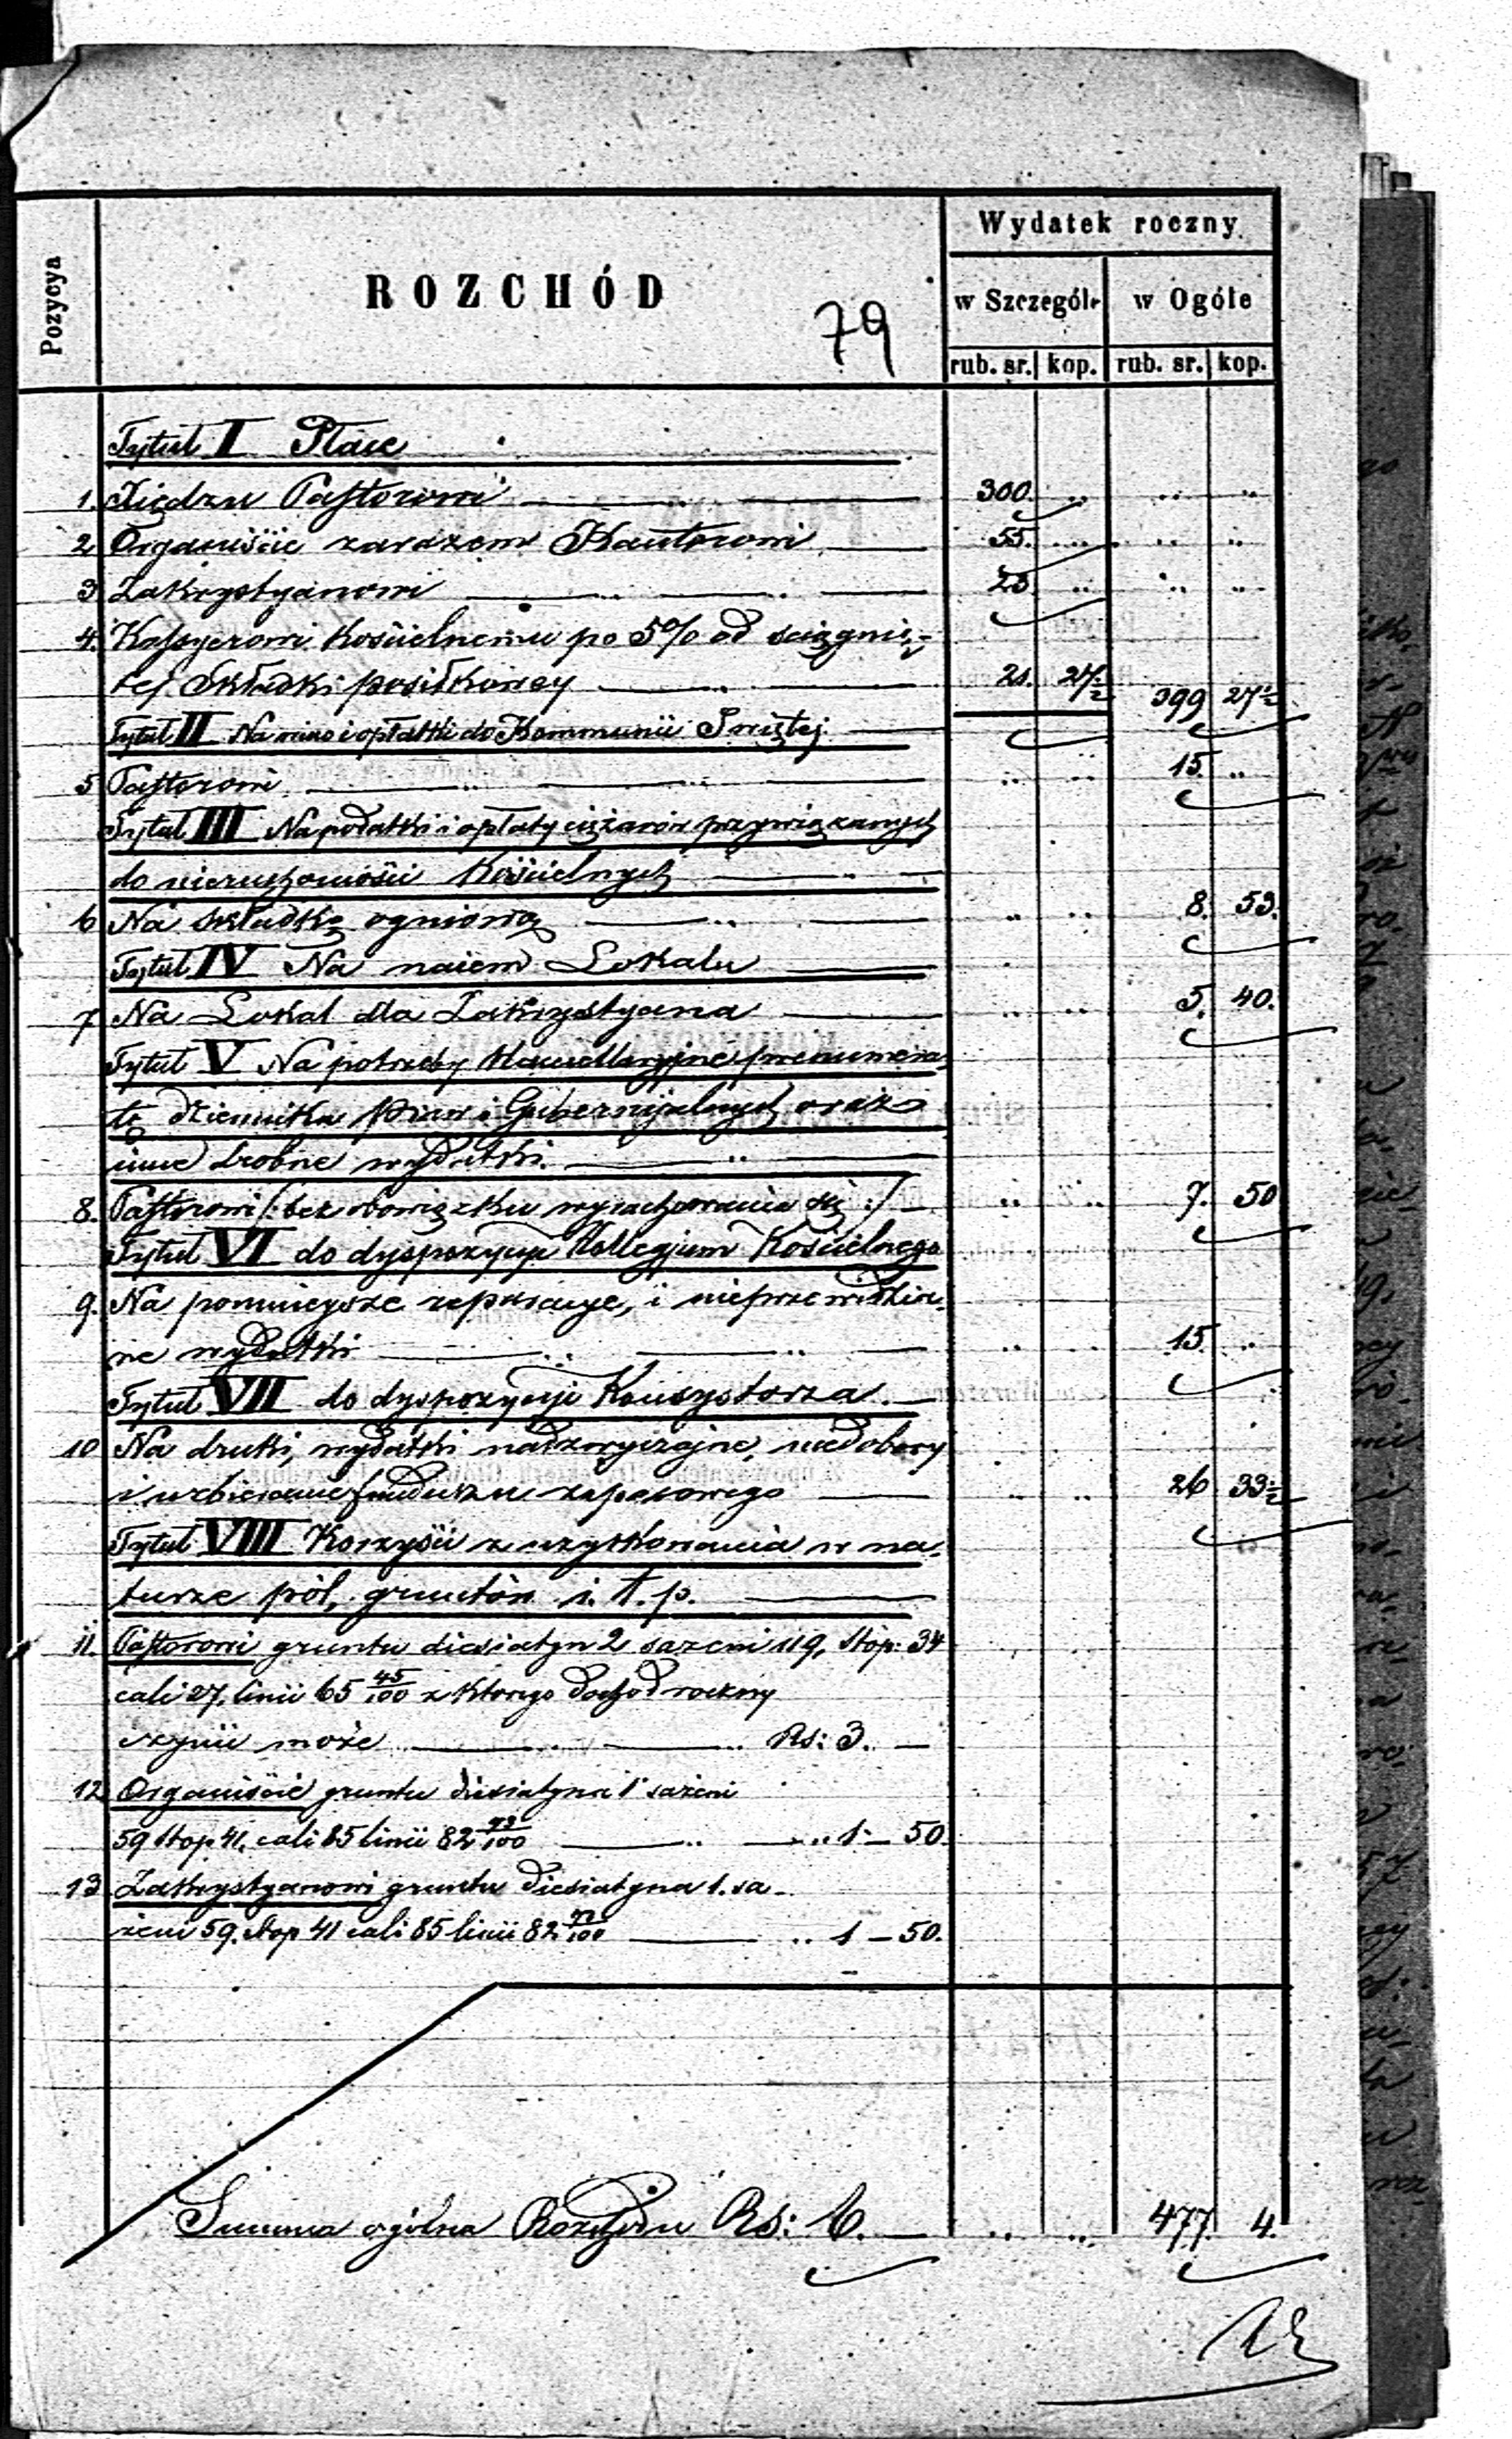 Wydatek roczny
Pozycya
ROZCHÓD
w Szczególe
w Ogóle
79
rub. sr. kop. rub. sr. kop.
Tytuł I Płace
1. Xiędzu Pastorowi 300 .. .. ..
2 Organiście zarazem Kantorowi 55. .. .. ..
3 Zakrystyanowi 23 .. .. ..
4. Kassyerowi Kościelnemu po 5% od sciągnię-
tej Składki posiłkowey 21. 27½ 399 27½
Tytuł II Na wino i opłatki do Kommunii Świętej
5 Pastorowi .. .. 15. ..
Tytuł III Na podatki i opłaty ciężarów przywiązanych
do nieruchomości Kościelnych
6 Na składkę ogniową .. .. 8. 53.
Tytuł IV Na naiem Lokalu
7 Na Lokal dla Zakrystyana .. .. 5. 40.
Tytuł V Na potrzeby Kancellaryjne prenumera-
tę dziennika Praw i Gubernijalnych oraz
inne drobne wydatki.
8. Pastorowi /: bez obowiązku wyrachowania się :/ .. .. 7. 50
Tytuł VI do dyspozycyi Kollegjum Kościelnego
9. Na pomnieysze reperacye, i nieprzewidzia-
ne wydatki .. .. 15. ..
Tytuł VII do dyspozycyi Konsystorza.
10 Na druki, wydatki nadzwyczajne, niedobory
i uzbieranie funduszu zapasowego .. .. 26 33½
Tytuł VIII Korzyści z uzytkowania w na-
turze pól, gruntów i. t. p.
11. Pastorowi gruntu diesiatyn 2 sażeni 119, stóp: 34
cali 27, linii 65 45/100 z ktorego dochod roczny
czynić może Rs: 3. —
12 Organiście gruntu diesiatyna 1 sażeni
59 stop 41, cali 85 linii 82 /100 .. 1 — 50.
13 Zakrystyanowi gruntu diesiatyna 1. sa-
żeni 59. stop 41 cali 85 linii 82 /100 .. 1 — 50.
Summa ogólna Rozchodu Rs: 6. — .. .. 477 4.